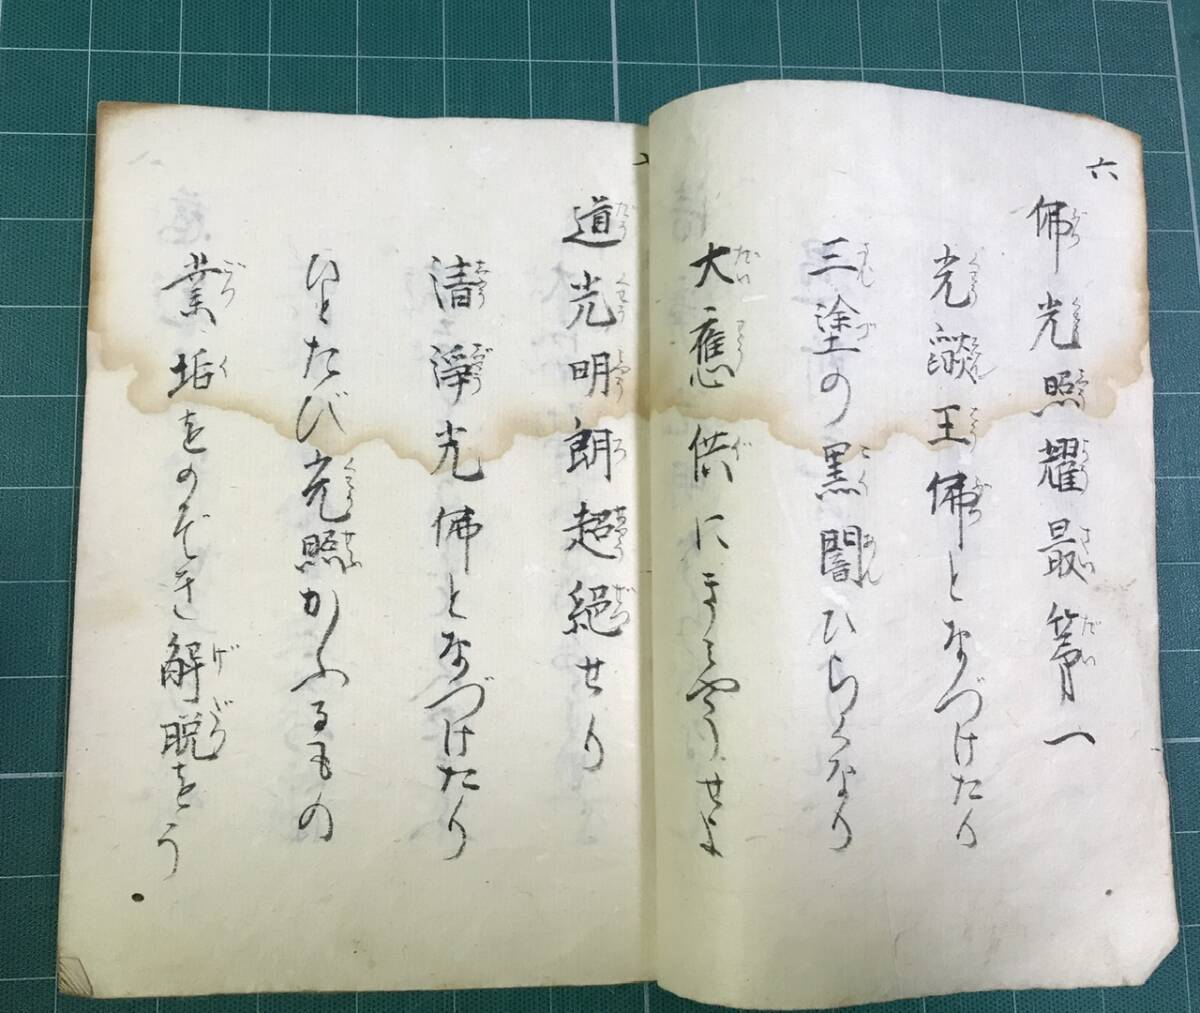 六
佛光照耀最第一
光燄王佛となづけたり
三塗の黒闇ひらくなり
大應供にきみやうせよ
道光明朗超絶せり
清淨光佛となづけたり
ひとたび光照かふるもの
業垢をのぞき解脱をう